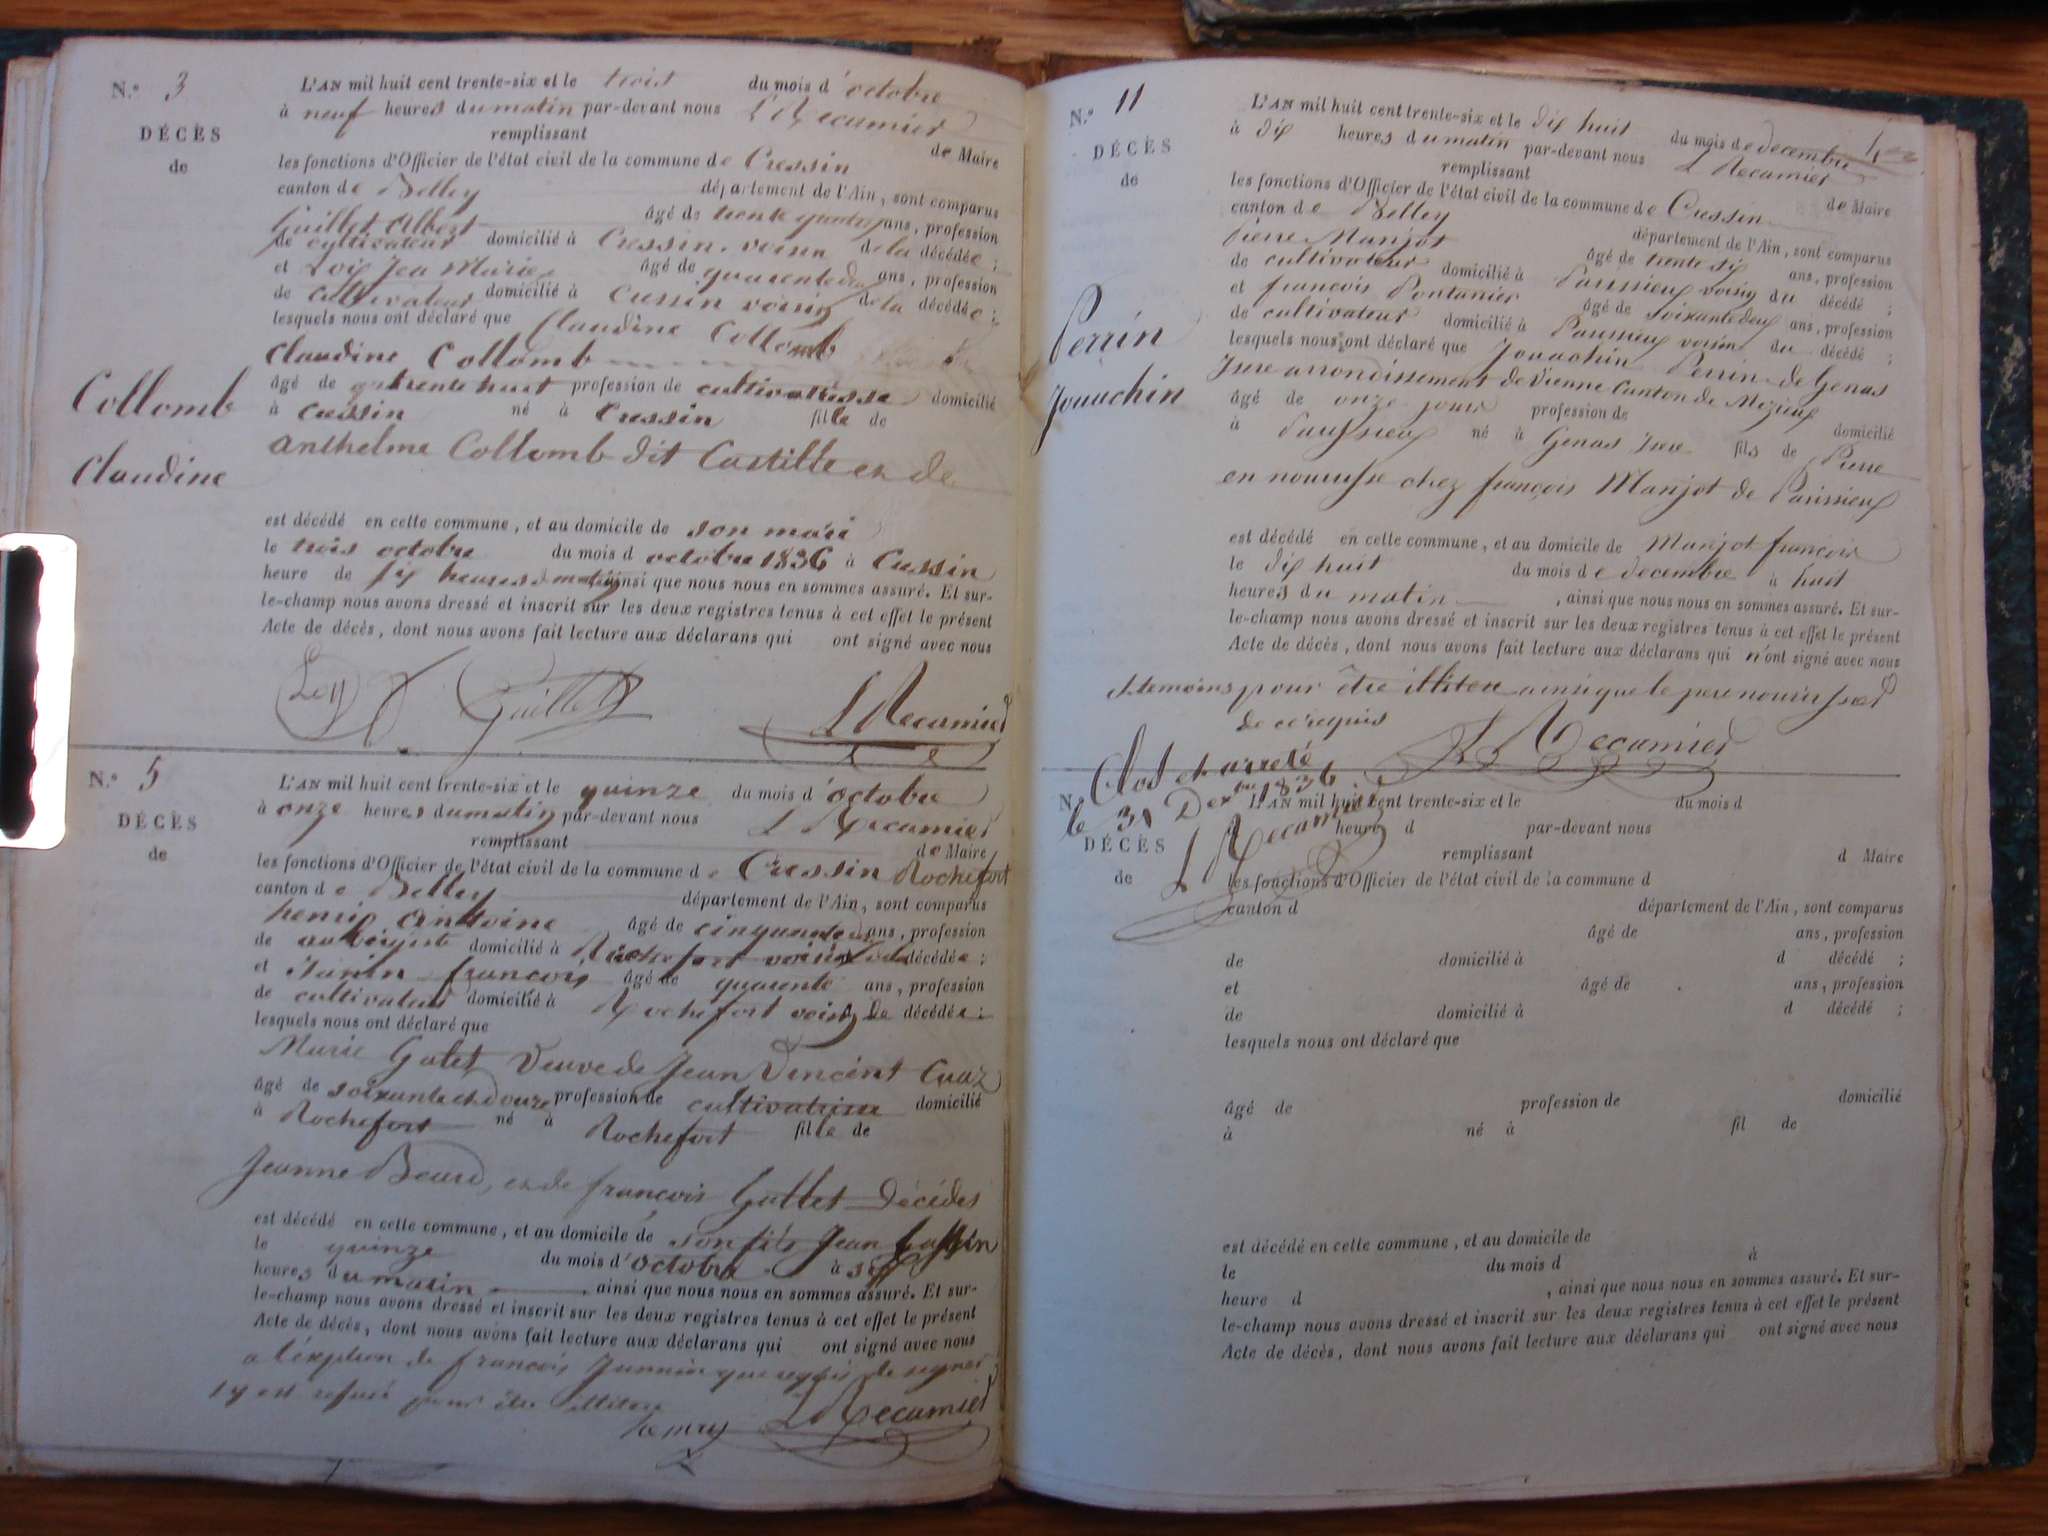 N.º 3
DÉCÈS
de
Collomb
Claudine
L'AN mil huit cent trente-six et le trois du mois d'octobre
à neuf heures du matin par-devant nous L Recamier
remplissant de Maire
les fonctions d'Officier de l'état civil de la commune de Cressin
canton de Belley département de l'Ain, sont comparus
Guillet Albert âgé de trente quatre ans, profession
de cultivateur domicilié à Cressin voisin de la décédée ;
et Jea Marie âgé de quarente ans, profession
de cultivateur domicilié à Cressin voisin de la décédée ;
lesquels nous ont déclaré que Claudine Collomb
Claudine Collomb
âgé de huit profession de cultivatrisse domicilié
à Cressin né à Cressin fille de
anthelme Collomb dit Castille et de
est décédé en cette commune, et au domicile de son mari
le trois octobre du mois d octobre 1836 à Cressin
heure de six heures matin ainsi que nous nous en sommes assuré. Et sur-
le-champ nous avons dressé et inscrit sur les deux registres tenus à cet effet le présent
Acte de décès, dont nous avons fait lecture aux déclarans qui ont signé avec nous
Guillet L Recamier
N.º 5
DÉCÈS
de
L'AN mil huit cent trente-six et le quinze du mois d'octobre
à onze heures du matin par-devant nous L Recamier
remplissant de Maire
les fonctions d'Officier de l'état civil de la commune de Cressin Rochefort
canton de Belley département de l'Ain, sont comparus
henrip antoine âgé de cinquante ans, profession
de aubergiste domicilié à Rochefort voisin de la décédée ;
et Janin francois âgé de quarente ans, profession
de cultivateur domicilié à Rochefort voisin de décédée ;
lesquels nous ont déclaré que
Marie Gallet Veuve de Jean Vincent Cuaz
âgé de soixante et douze profession de cultivatrisse domicilié
à Rochefort né à Rochefort fille de
Jeanne Beard, et de francois Gallet Décédés
est décédé en cette commune, et au domicile de son fils Jean
le quinze du mois d'octobre à six
heures du matin, ainsi que nous nous en sommes assuré. Et sur-
le-champ nous avons dressé et inscrit sur les deux registres tenus à cet effet le présent
Acte de décès, dont nous avons fait lecture aux déclarans qui ont signé avec nous
a l'exption de francois Jannin que requis de signer
s'y est refusé pour être illitere
henry L Recamier
N.º 11
DÉCÈS
de
Perrin
Jouachin
L'AN mil huit cent trente-six et le dix huit du mois de decembre
à dix heures du matin par-devant nous L Recamier
remplissant de Maire
les fonctions d'Officier de l'état civil de la commune de Cressin
canton de Belley département de l'Ain, sont comparus
Pierre Manjot âgé de trente six ans, profession
de cultivateur domicilié à Parissieux voisin du décédé ;
et francois Pontanier âgé de soixante deux ans, profession
de cultivateur domicilié à Parissieux voisin du décédé ;
lesquels nous ont déclaré que Jouachin Perrin de Genas
Isere arrondissement de Vienne Canton de Mezieux
âgé de onze jours profession de domicilié
à Parissieux né à Genas Isere fils de Pierre
en nourrisse chez françois Manjot de Parissieux
est décédé en cette commune, et au domicile de Manjot francois
le dix huit du mois de decembre à huit
heures du matin, ainsi que nous nous en sommes assuré. Et sur-
le-champ nous avons dressé et inscrit sur les deux registres tenus à cet effet le présent
Acte de décès, dont nous avons fait lecture aux déclarans qui n'ont signé avec nous
temoins pour être illitere ainsi que le pere nourissier
de ce requis
L Recamier
Clos et arreté
le 31 Dexbre 1836
L Recamier
N.º
DÉCÈS
de
L'AN mil huit cent trente-six et le du mois d
à heure d par-devant nous
remplissant d Maire
les fonctions d'Officier de l'état civil de la commune d
canton d département de l'Ain, sont comparus
âgé de ans, profession
de domicilié à d décédé ;
et âgé de ans, profession
de domicilié à d décédé ;
lesquels nous ont déclaré que
âgé de profession de domicilié
à né à fil de
est décédé en cette commune, et au domicile de
le du mois d à
heure d , ainsi que nous nous en sommes assuré. Et sur-
le-champ nous avons dressé et inscrit sur les deux registres tenus à cet effet le présent
Acte de décès, dont nous avons fait lecture aux déclarans qui ont signé avec nous